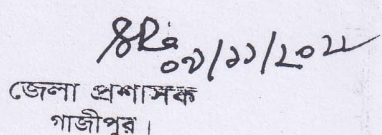 ০৭/১১/২০২২
জেলা প্রশাসক
গাজীপুর।